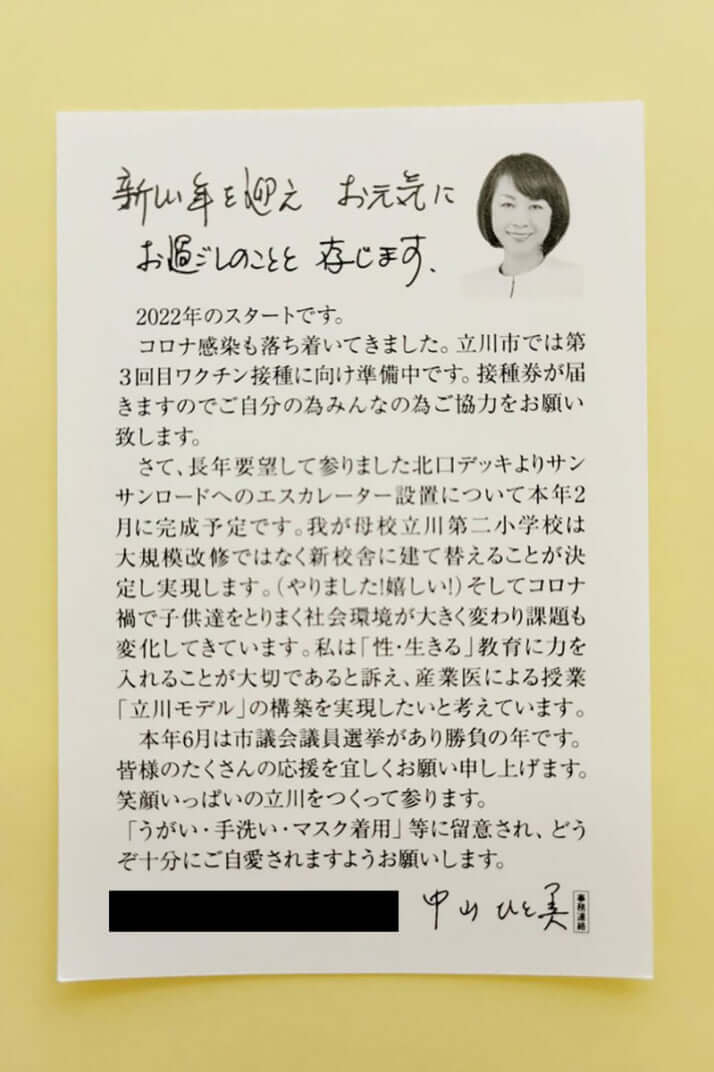 新しい年を迎え お元気に
お過ごしのことと 存じます、
2022年のスタートです。
コロナ感染も落ち着いてきました。立川市では第
3回目ワクチン接種に向け準備中です。接種券が届
きますのでご自分の為みんなの為ご協力をお願い
致します。
さて、長年要望して参りました北口デッキよりサン
サンロードへのエスカレーター設置について本年2
月に完成予定です。我が母校立川第二小学校は
大規模改修ではなく新校舎に建て替えることが決
定し実現します。(やりました!嬉しい!)そしてコロナ
禍で子供達をとりまく社会環境が大きく変わり課題も
変化してきています。私は「性・生きる」教育に力を
入れることが大切であると訴え、産業医による授業
「立川モデル」の構築を実現したいと考えています。
本年6月は市議会議員選挙があり勝負の年です。
皆様のたくさんの応援を宜しくお願い申し上げます。
笑顔いっぱいの立川をつくって参ります。
「うがい・手洗い・マスク着用」等に留意され、どう
ぞ十分にご自愛されますようお願いします。
中山ひと美
事務連絡